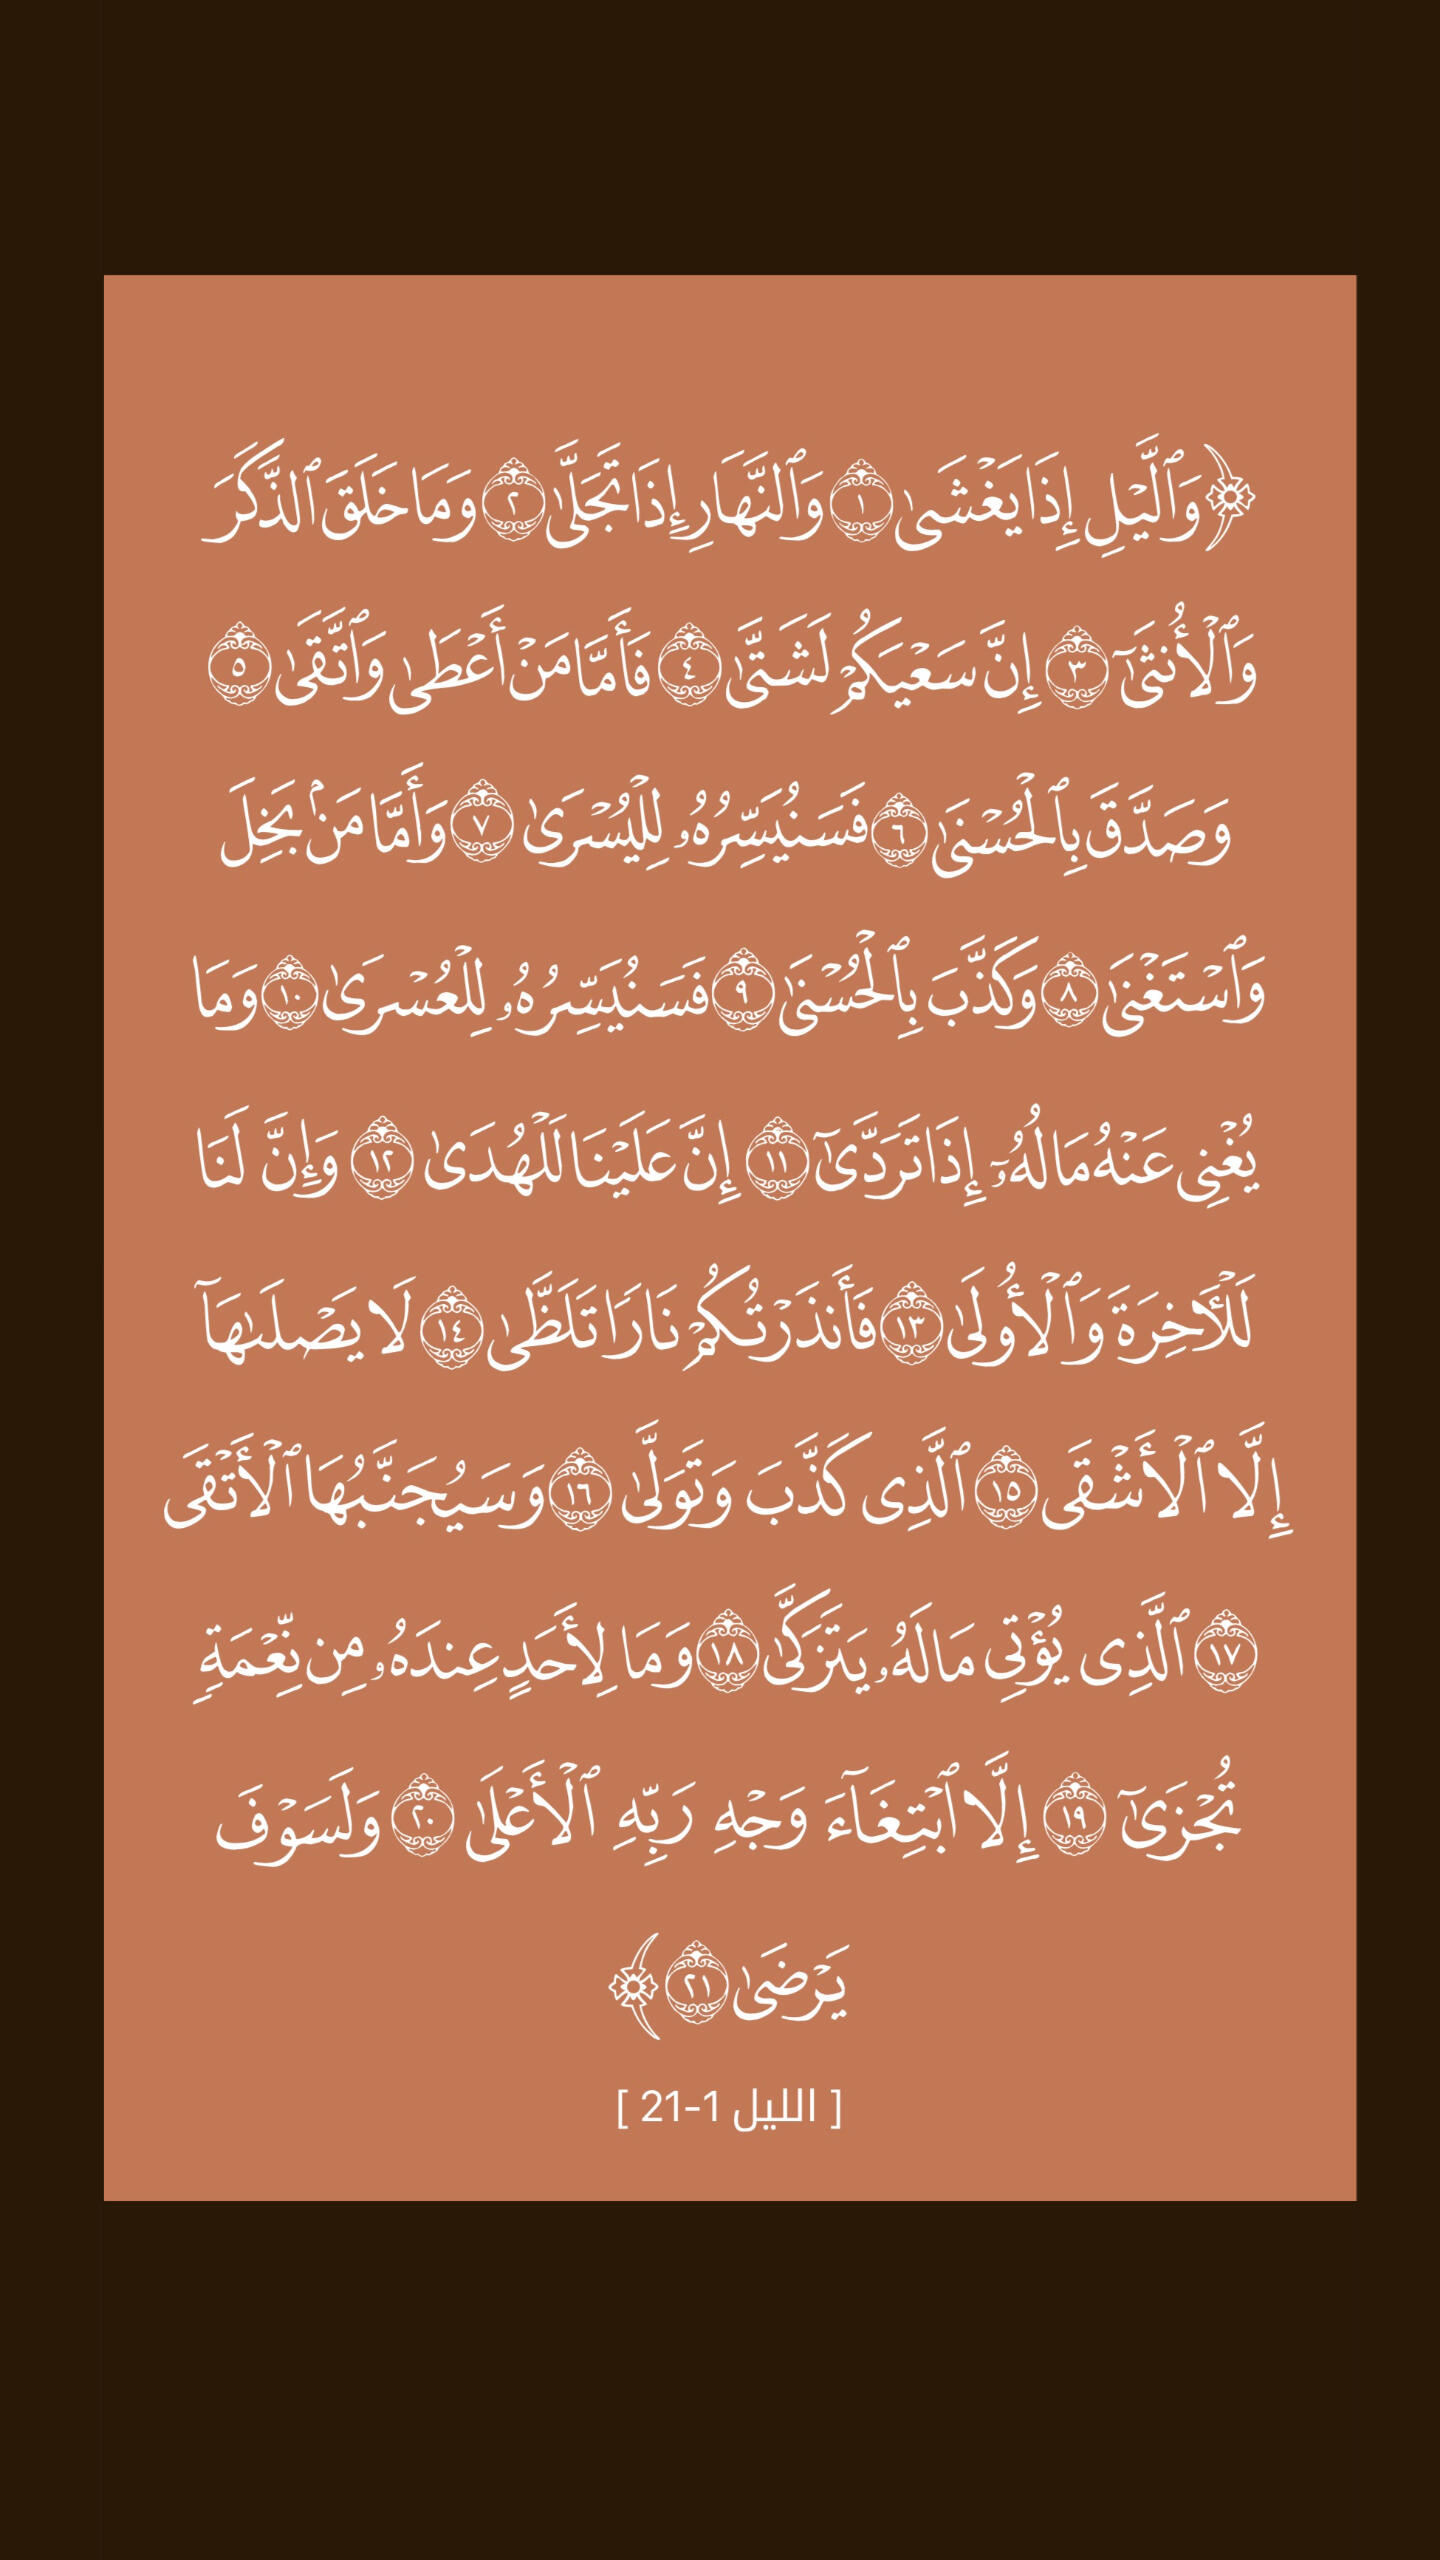 ﴿وَٱلَّيۡلِ إِذَا يَغۡشَىٰ ١ وَٱلنَّهَارِ إِذَا تَجَلَّىٰ ٢ وَمَا خَلَقَ ٱلذَّكَرَ
وَٱلۡأُنثَىٰٓ ٣ إِنَّ سَعۡيَكُمۡ لَشَتَّىٰ ٤ فَأَمَّا مَنۡ أَعۡطَىٰ وَٱتَّقَىٰ ٥
وَصَدَّقَ بِٱلۡحُسۡنَىٰ ٦ فَسَنُيَسِّرُهُۥ لِلۡيُسۡرَىٰ ٧ وَأَمَّا مَنۢ بَخِلَ
وَٱسۡتَغۡنَىٰ ٨ وَكَذَّبَ بِٱلۡحُسۡنَىٰ ٩ فَسَنُيَسِّرُهُۥ لِلۡعُسۡرَىٰ ١٠ وَمَا
يُغۡنِي عَنۡهُ مَالُهُۥٓ إِذَا تَرَدَّىٰٓ ١١ إِنَّ عَلَيۡنَا لَلۡهُدَىٰ ١٢ وَإِنَّ لَنَا
لَلۡأٓخِرَةَ وَٱلۡأُولَىٰ ١٣ فَأَنذَرۡتُكُمۡ نَارٗا تَلَظَّىٰ ١٤ لَا يَصۡلَىٰهَآ
إِلَّا ٱلۡأَشۡقَى ١٥ ٱلَّذِي كَذَّبَ وَتَوَلَّىٰ ١٦ وَسَيُجَنَّبُهَا ٱلۡأَتۡقَى
١٧ ٱلَّذِي يُؤۡتِي مَالَهُۥ يَتَزَكَّىٰ ١٨ وَمَا لِأَحَدٍ عِندَهُۥ مِن نِّعۡمَةٖ
تُجۡزَىٰٓ ١٩ إِلَّا ٱبۡتِغَآءَ وَجۡهِ رَبِّهِ ٱلۡأَعۡلَىٰ ٢٠ وَلَسَوۡفَ
يَرۡضَىٰ ٢١﴾
[ الليل 1-21 ]